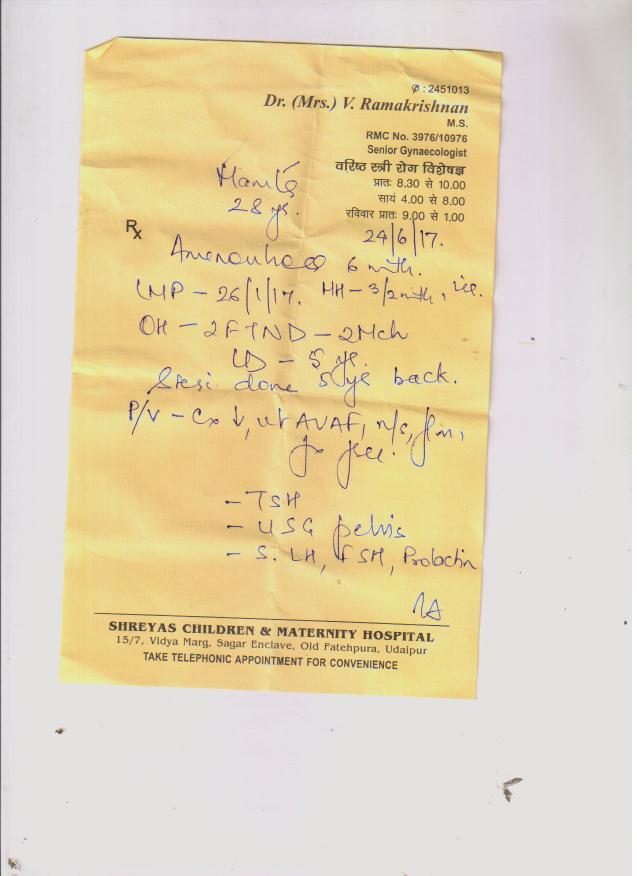 Ø : 2451013
Dr. (Mrs.) V. Ramakrishnan
M.S.
RMC No. 3976/10976
Senior Gynaecologist
वरिष्ठ स्त्री रोग विशेषज्ञ
प्रातः 8.30 से 10.00
सायं 4.00 से 8.00
रविवार प्रातः 9.00 से 1.00
28 ys.
24/6/17.
Rx
6 mth.
LMP - 26/1/17. MH - 3/2mth,
OH - 2FTND - 2Mch
LD - 5 ys.
done 5 ys back.
P/V - Cx ↓, ut AVAF, n/s, fm,
fx free.
- TSH
- USG pelvis
- S. LH, FSH, Prolactin
SHREYAS CHILDREN & MATERNITY HOSPITAL
15/7, Vidya Marg, Sagar Enclave, Old Fatehpura, Udaipur
TAKE TELEPHONIC APPOINTMENT FOR CONVENIENCE